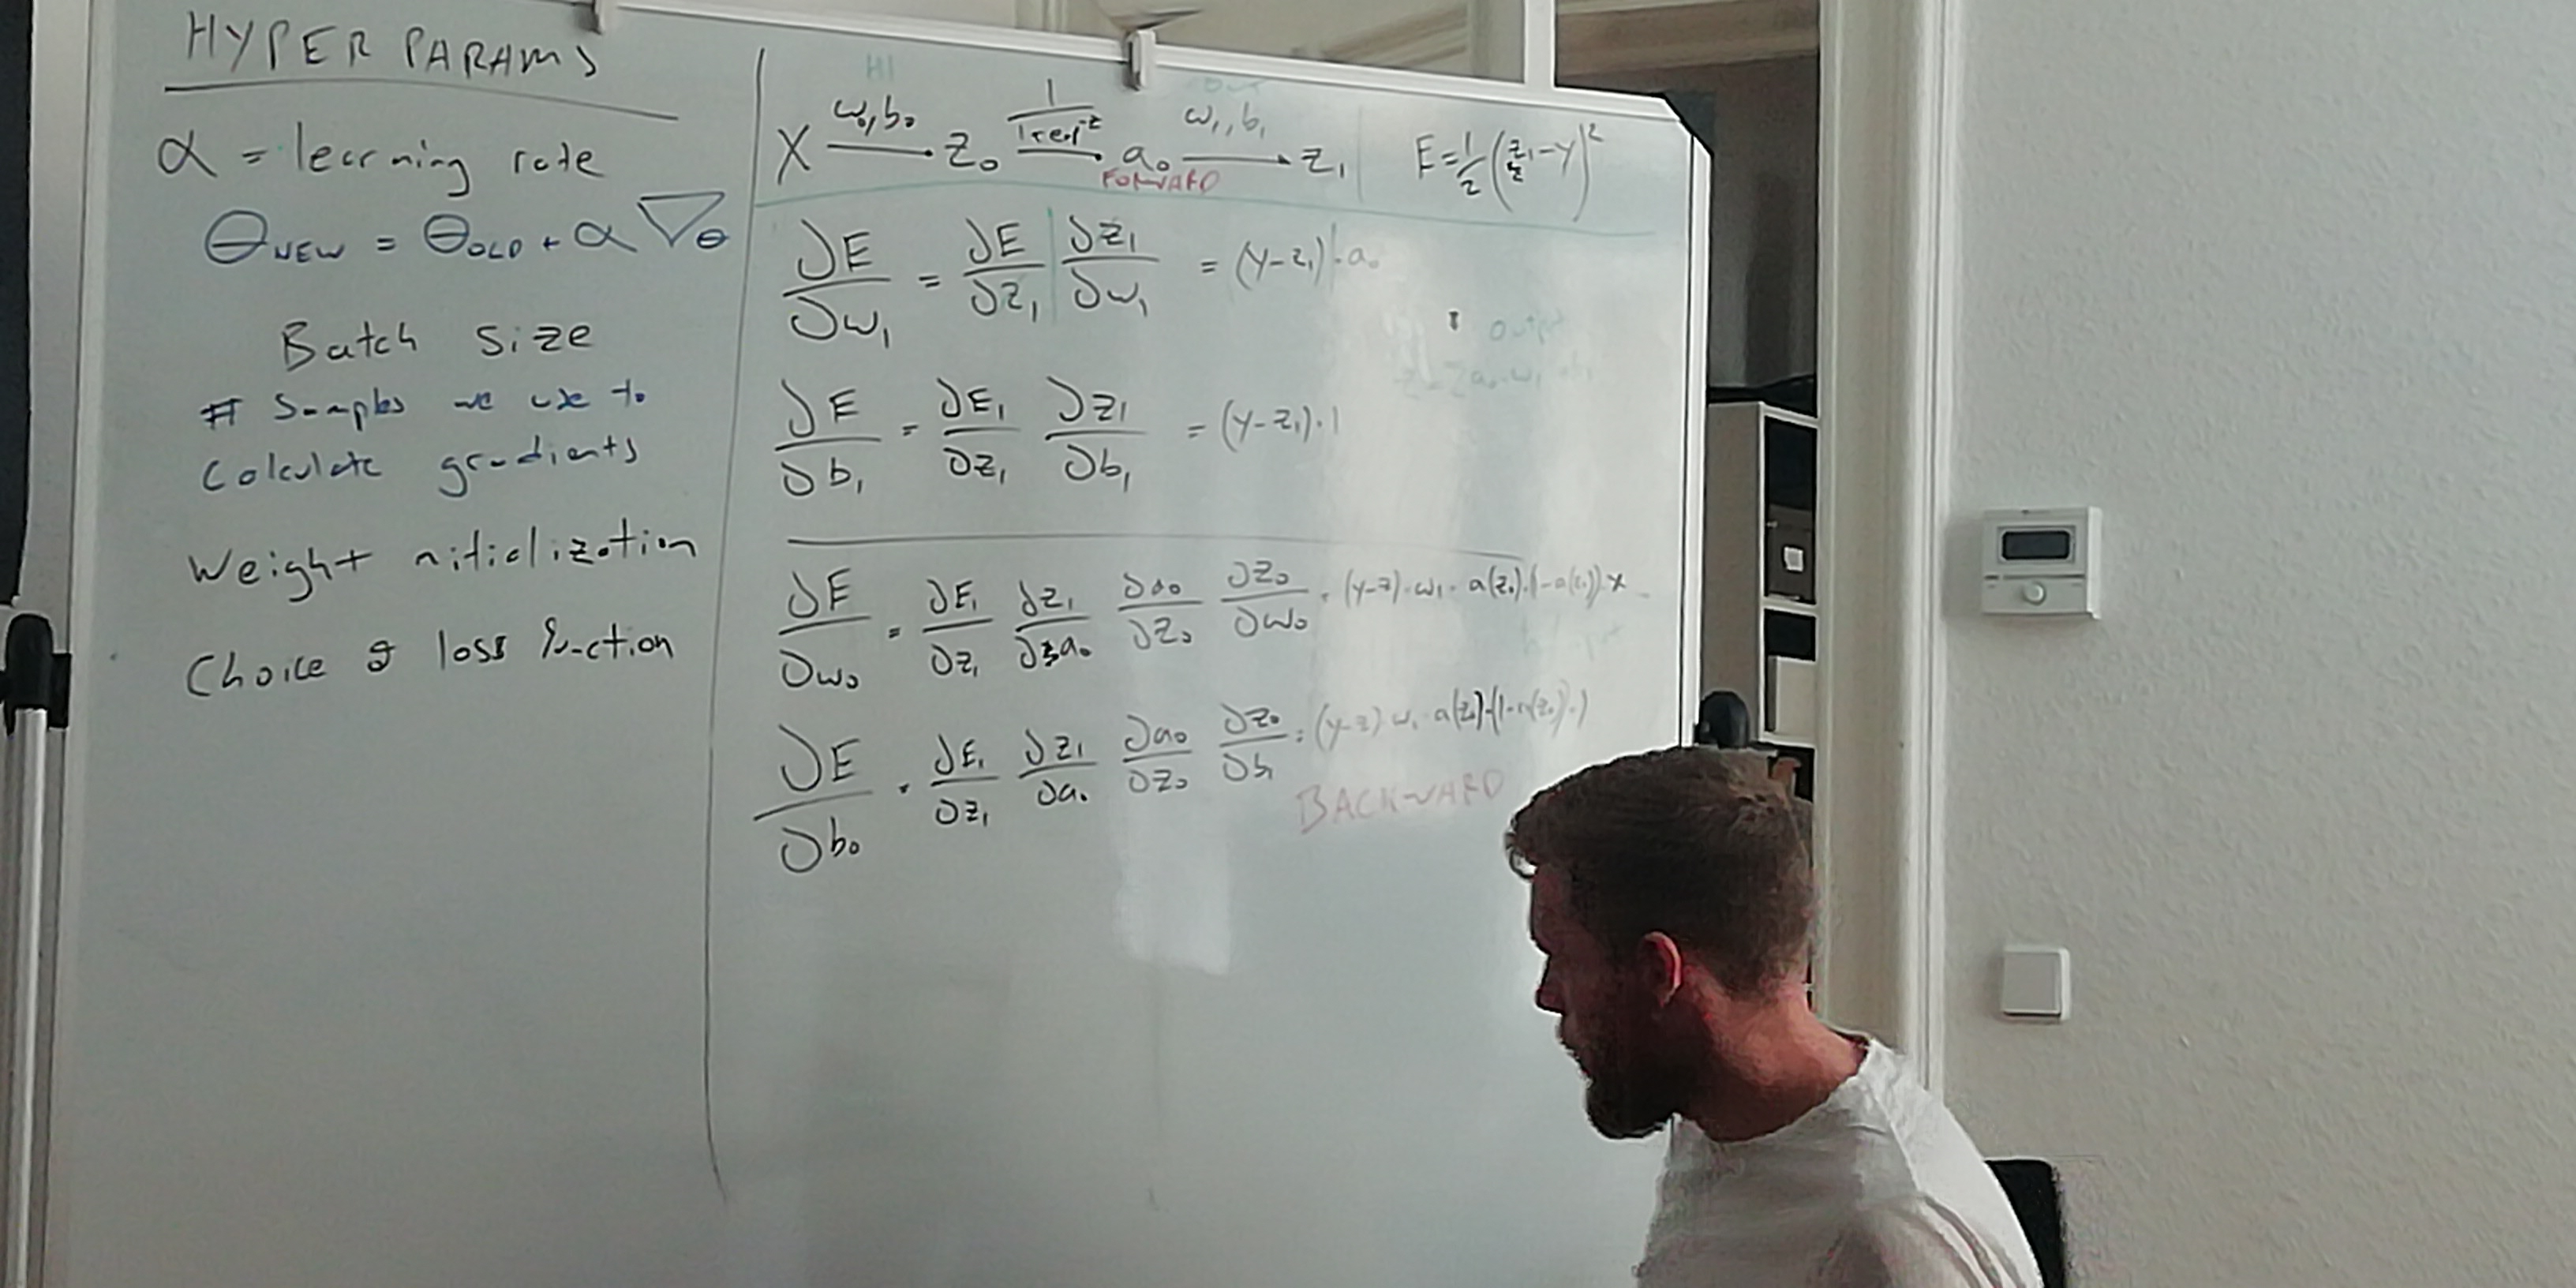 HYPER PARAMS
α = learning rate
θNEW = θOLD + α ∇θ
Batch Size
# Samples we use to
Calculate gradients
Weight nitialization
Choice of loss function
H1
X → z₀ → a₀ → z₁
w₀, b₀
w₁, b₁
E = 1/2 (z₁ - y)²
FORWARD
∂E/∂w₁ = ∂E/∂z₁ ∂z₁/∂w₁ = (y-z₁)·a₀
output
∂E/∂b₁ = ∂E₁/∂z₁ ∂z₁/∂b₁ = (y-z₁)·1
∂E/∂w₀ = ∂E₁/∂z₁ ∂z₁/∂a₀ ∂a₀/∂z₀ ∂z₀/∂w₀ = (y-z)·w₁·a(z₀)·(1-a(z₀))·x
∂E/∂b₀ = ∂E₁/∂z₁ ∂z₁/∂a₀ ∂a₀/∂z₀ ∂z₀/∂b₁ = (y-z)·w₁·a(z₀)·(1-a(z₀))·1
BACKWARD